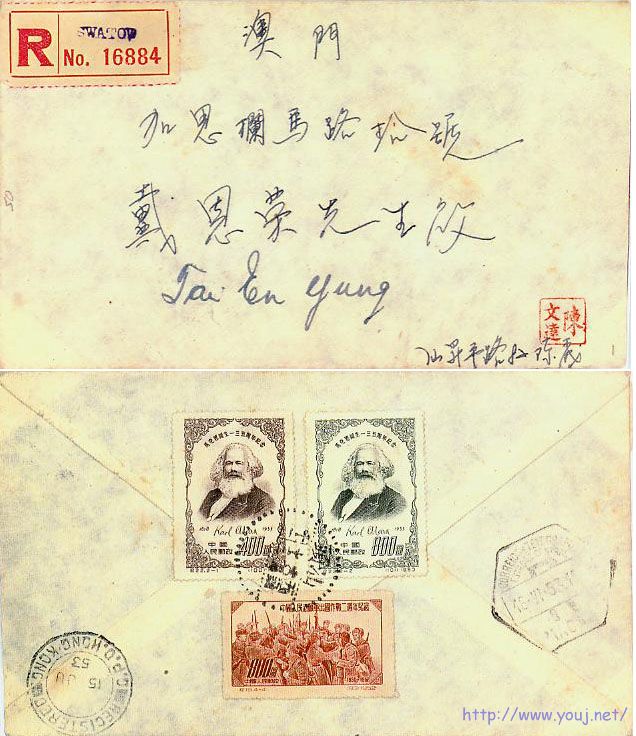 R
SWATOW
No. 16884
澳門
加思欄馬路拾號
戴恩榮先生啟
Tai En Yung
陳文達
汕昇平路
馬克思誕生一三五周年紀念
1818 Karl Marx 1953
中國人民郵政 400圓
馬克思誕生一三五周年紀念
1818 Karl Marx 1953
中國人民郵政 800圓
中國人民志願軍出國作戰二週年紀念
800圓
中國人民郵政
REGISTERED G.P.O. HONG KONG
15 JU
53
http://www.youj.net/